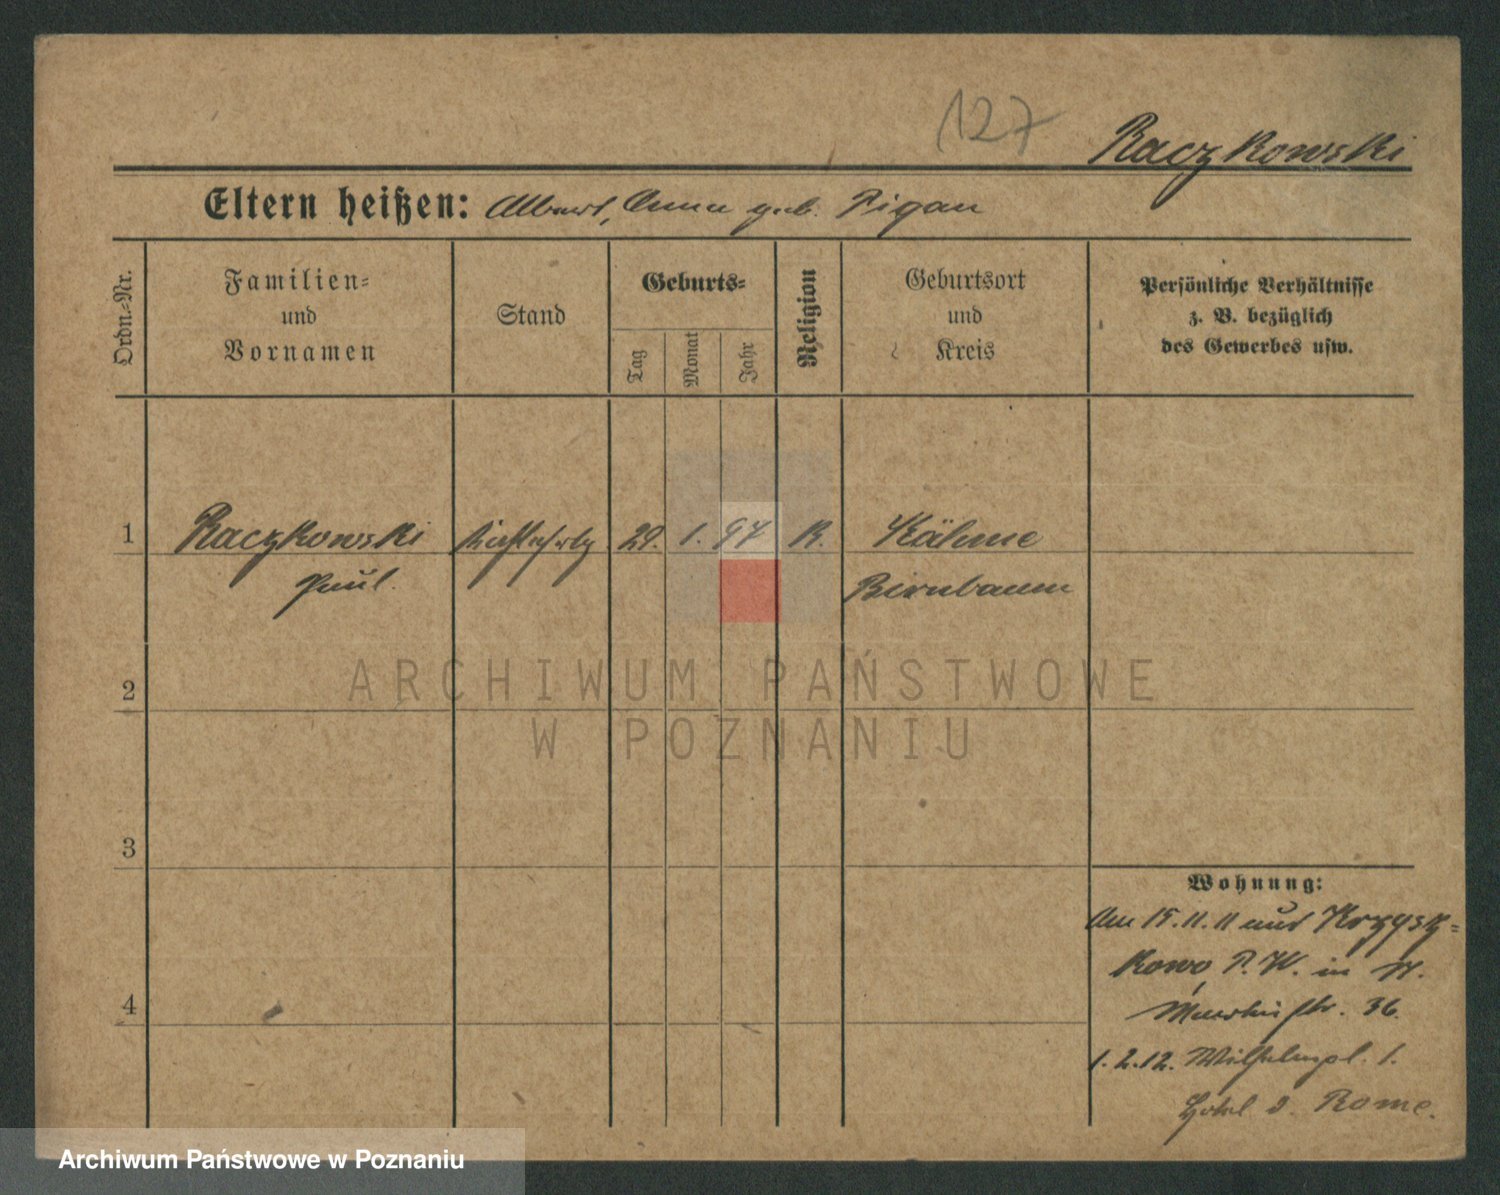 127
Raczkowski
Eltern heißen: Albert, Anna geb. Pigan
Ordn.-Nr.
Familien-
und
Vornamen
Stand
Geburts-
Tag
Monat
Jahr
Religion
Geburtsort
und
Kreis
Persönliche Verhältnisse
z. B. bezüglich
des Gewerbes usw.
1 Raczkowski 29. 1. 97 K. Kähme
Paul. Birnbaum
2
ARCHIWUM PAŃSTWOWE
W POZNANIU
3
Wohnung:
Am 15.11.11 aus Krzysz-
kowo P. W. in
str. 36.
4
1.2.12. Wilhelmpl. 1.
Hotel d. Rome.
Archiwum Państwowe w Poznaniu